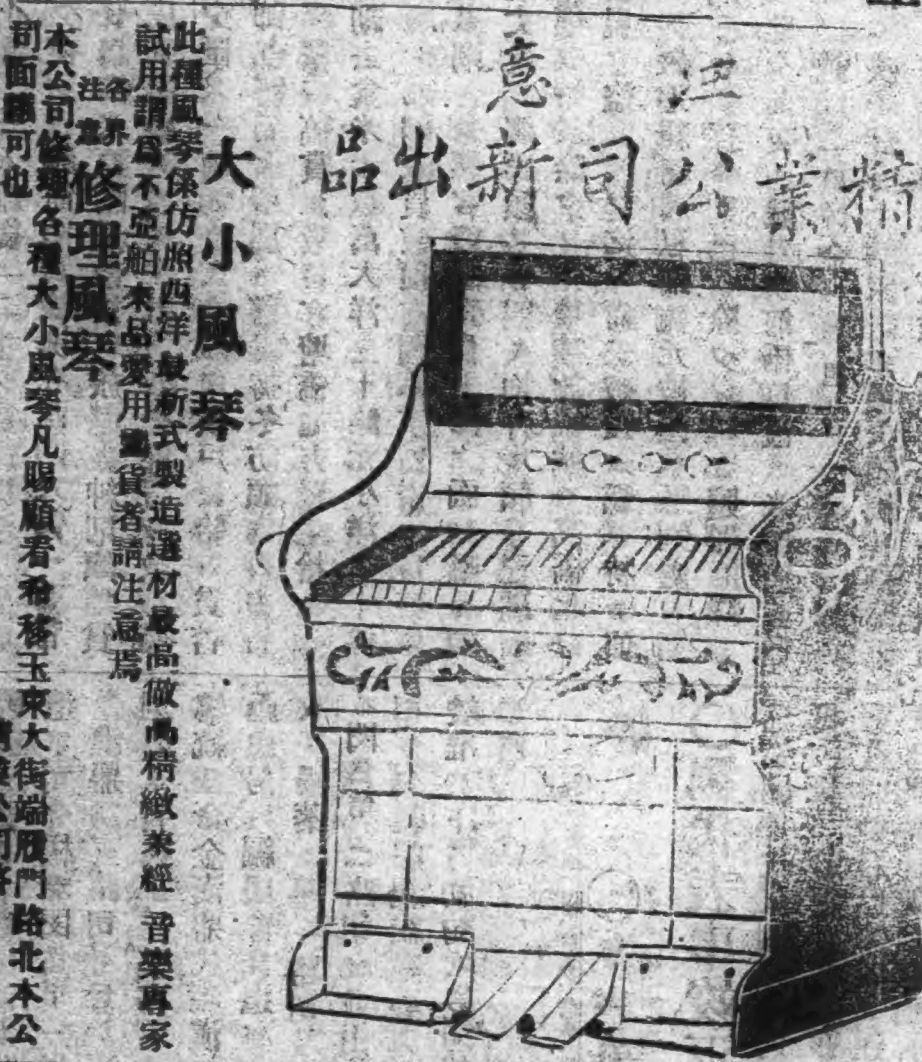 注意
精業公司新出品
大小風琴
此種風琴係仿照西洋最新式製造選材最品做高精緻來經音樂專家
試用謂為不亞舶來品愛用國貨者請注意焉
各界
注意
修理風琴
本公司修理各種大小風琴凡賜顧者希移玉東大街端履門路北本公
司面議可也